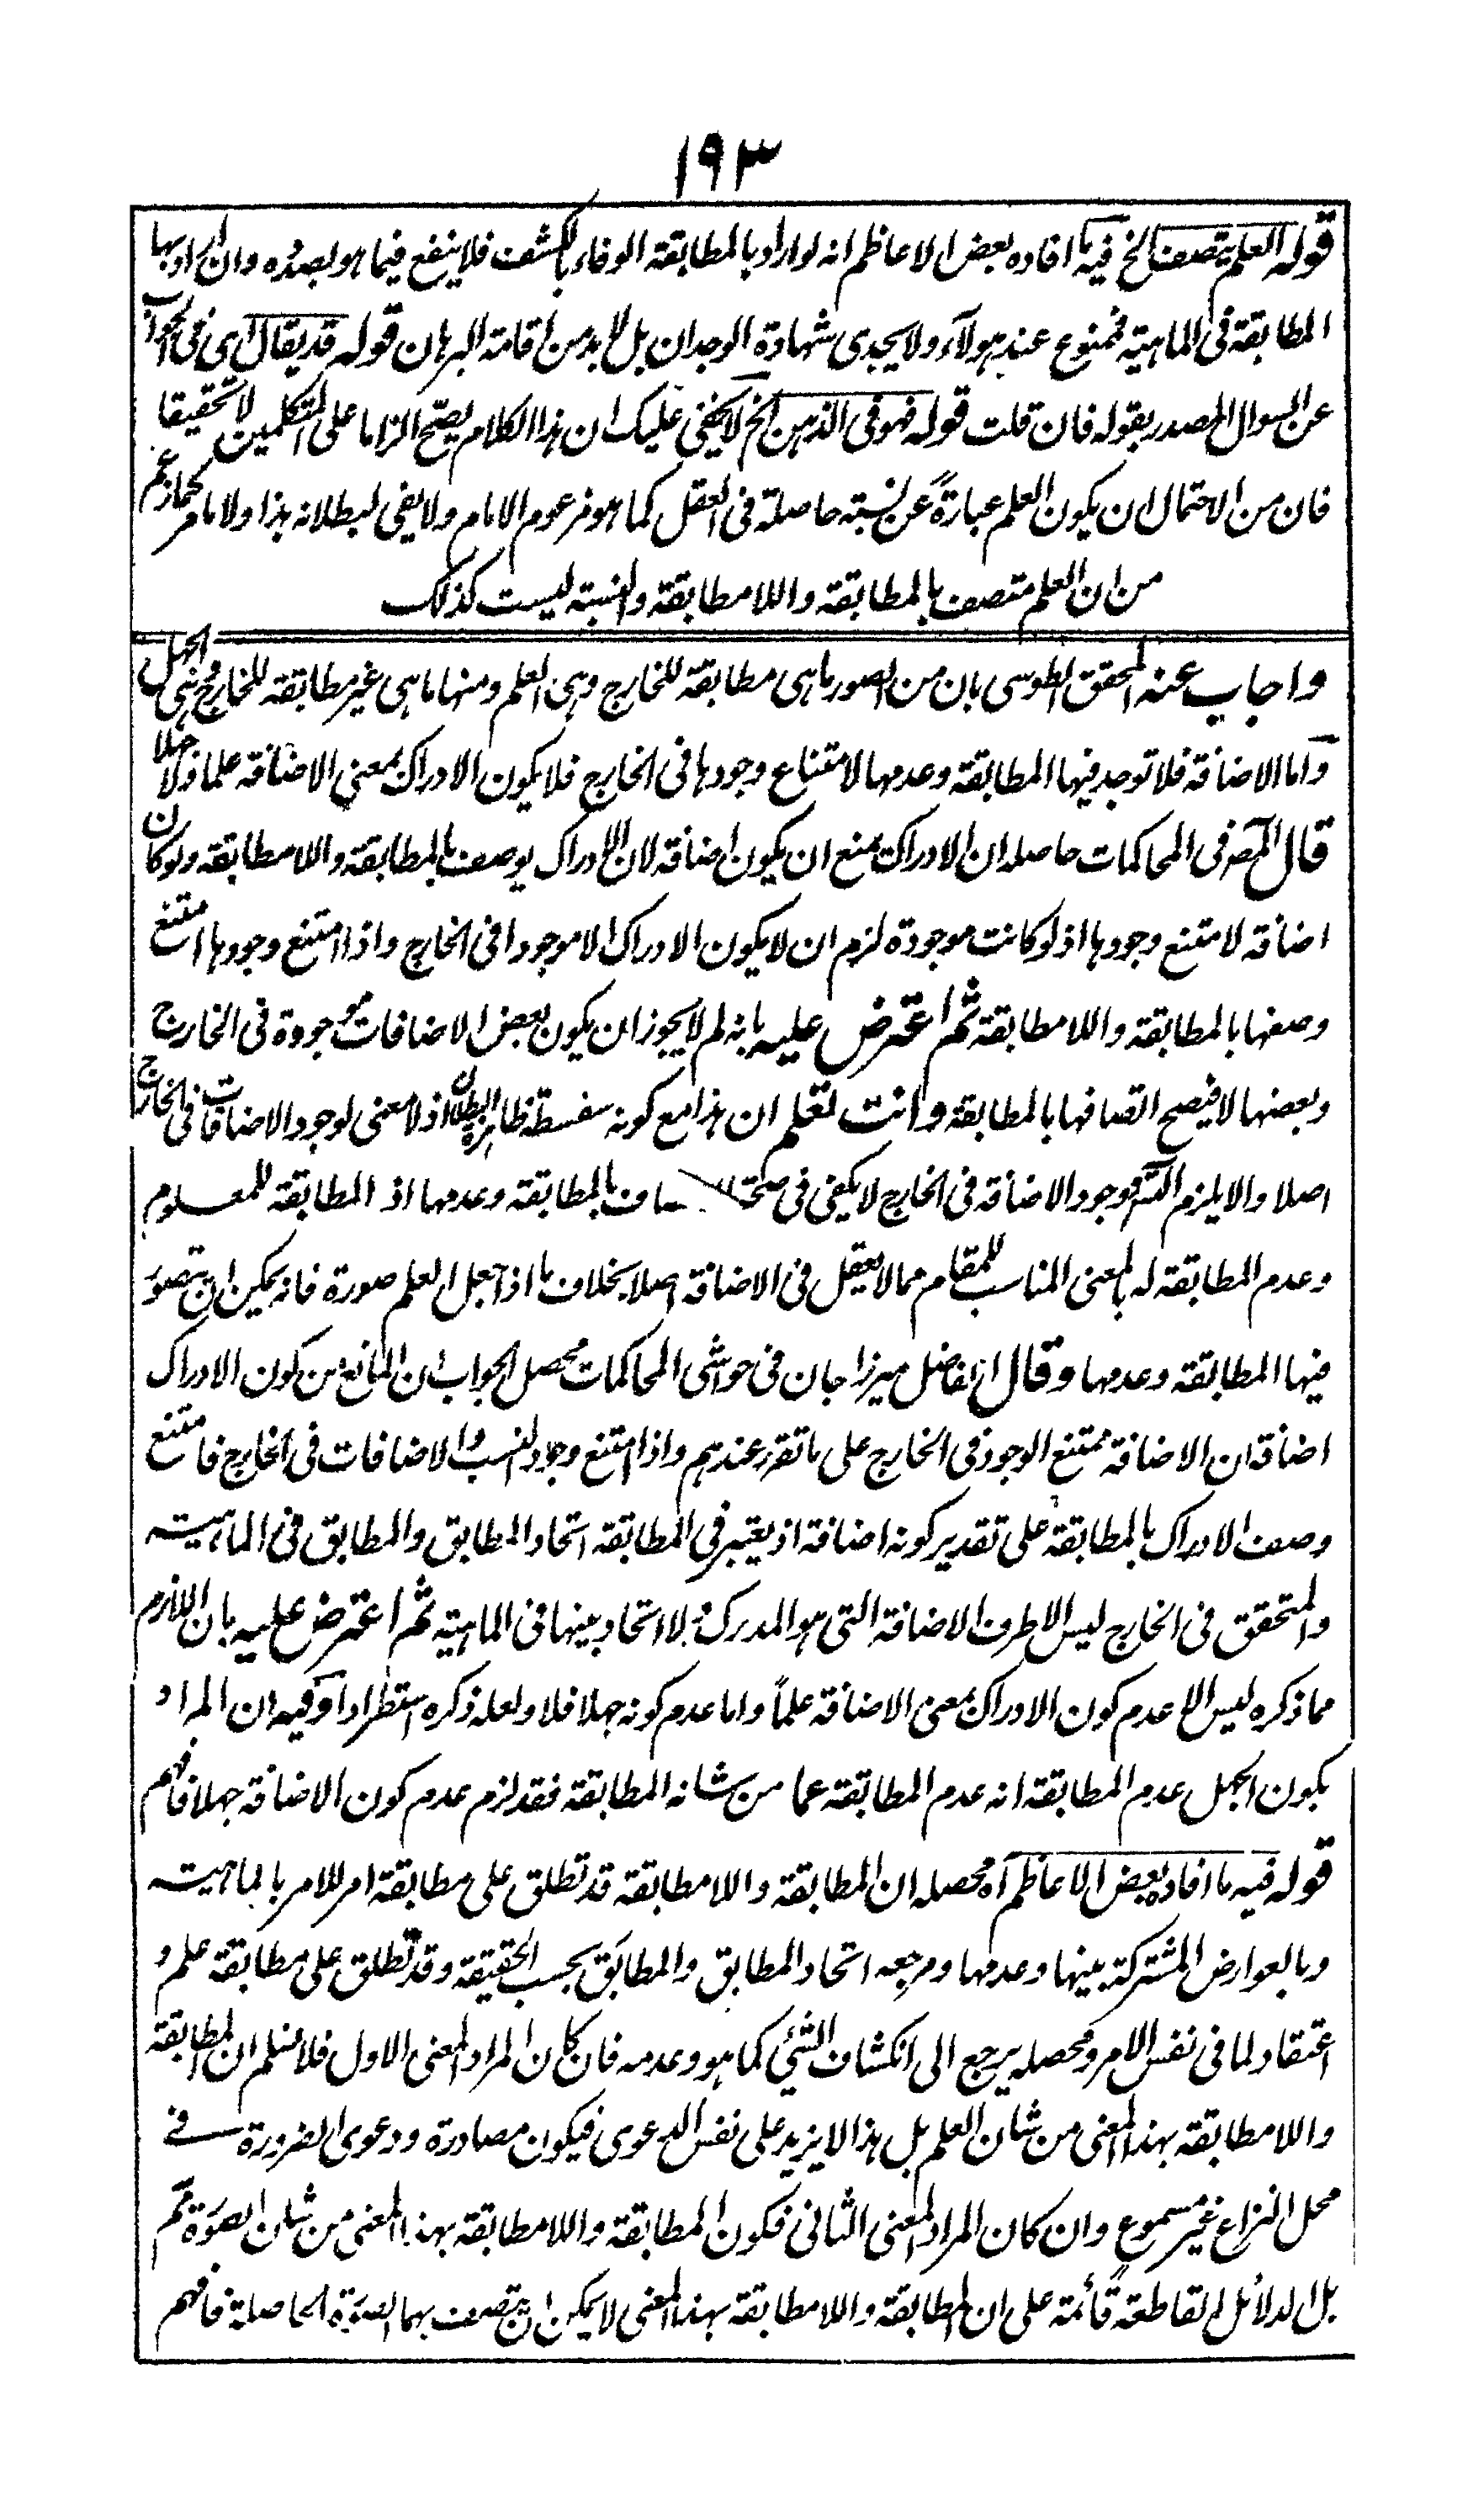 ١٩٣
قوله العلم يتصف الخ فيه ما افاده بعض الاعاظم انه لو اراد بالمطابقة الوفاء بالكشف فلا ينفع فيما هو بصدده وان اراد بها
المطابقة فى الماهية فممنوع عند هولاء ولا يجدى شهادة الوجدان بل لا بد من اقامة البرهان قوله قد يقال اى فى الجواب
عن السوال المصدر بقوله فان قلت قوله فهو فى الذهن الخ لا يخفى عليك ان هذا الكلام يصح الزاما على المتكلمين لا تحقيقا
فان من الاحتمال ان يكون العلم عبارةً عن نسبة حاصلة فى العقل كما هو مزعوم الامام ولا يفى لبطلانه هذا ولا ما مر كما زعم
من ان العلم متصف بالمطابقة واللامطابقة والنسبة ليست كذلك
واجاب عنه المحقق الطوسى بان من الصور ما هى مطابقة للخارج وهى العلم ومنها ما هى غير مطابقة للخارج وهى الجهل
واما الاضافة فلا توجد فيها المطابقة وعدمها لامتناع وجودها فى الخارج فلا يكون الادراك بمعنى الاضافة علما ولا جهلا
قال المص فى المحاكمات حاصله ان الادراك يمتنع ان يكون اضافة لان الادراك يوصف بالمطابقة واللامطابقة ولو كان
اضافة لامتنع وجودها اذ لو كانت موجودة لزم ان لا يكون الادراك الا موجودا فى الخارج واذا امتنع وجودها امتنع
وصفها بالمطابقة واللامطابقة ثم اعترض عليه بانه لم لا يجوز ان يكون بعض الاضافات موجودة فى الخارج
وبعضها لا فيصح اتصافها بالمطابقة وانت تعلم ان هذا مع كونه سفسطة ظاهرة البطلان اذ لا معنى لوجود الاضافات فى الخارج
اصلا والا يلزم التس فوجود الاضافة فى الخارج لا يكفى فى صحة بالمطابقة وعدمها اذ المطابقة للمعلوم
وعدم المطابقة له بالمعنى المناسب للمقام مما لا يعقل فى الاضافة اصلا بخلاف ما اذا جعل العلم صورة فانه يمكن ان يتصور
فيها المطابقة وعدمها وقال الفاضل ميرزا جان فى حواشى المحاكمات محصل الجواب ان المانع من كون الادراك
اضافة ان الاضافة ممتنع الوجود فى الخارج على ما تقرر عندهم واذا امتنع وجود النسب والاضافات فى الخارج فامتنع
وصف الادراك بالمطابقة على تقدير كونه اضافة اذ يعتبر فى المطابقة اتحاد المطابق والمطابق فى الماهية
والمتحقق فى الخارج ليس الا طرف الاضافة التى هو المدرك ولا اتحاد بينها فى الماهية ثم اعترض عليه بان اللازم
مما ذكره ليس الا عدم كون الادراك بمعنى الاضافة علماً واما عدم كونه جهلا فلا ولعله ذكره استطرادا وفيه ان المراد
بكون الجهل عدم المطابقة انه عدم المطابقة عما من شانه المطابقة فقد لزم عدم كون الاضافة جهلا فافهم
قوله فيه ما افاده بعض الاعاظم آه محصله ان المطابقة واللامطابقة قد تطلق على مطابقة امر للامر بالماهية
وبالعوارض المشتركة بينها وعدمها ومرجعه اتحاد المطابق والمطابَق بحسب الحقيقة وقد تطلق على مطابقة علم و
اعتقاد لما فى نفس الامر ومحصله يرجع الى انكشاف الشئ كما هو وعدمه فان كان المراد المعنى الاول فلا نسلم ان المطابقة
واللامطابقة بهذا المعنى من شان العلم بل هذا لا يزيد على نفس الدعوى فيكون مصادرة ودعوى الضرورة فى
محل النزاع غير مسموع وان كان المراد المعنى الثانى فكون المطابقة واللامطابقة بهذا المعنى من شان الصورة مم
بل الدلائل القاطعة قائمة على ان المطابقة واللامطابقة بهذا المعنى لا يمكن ان يتصف بهما الصورة الحاصلة فافهم